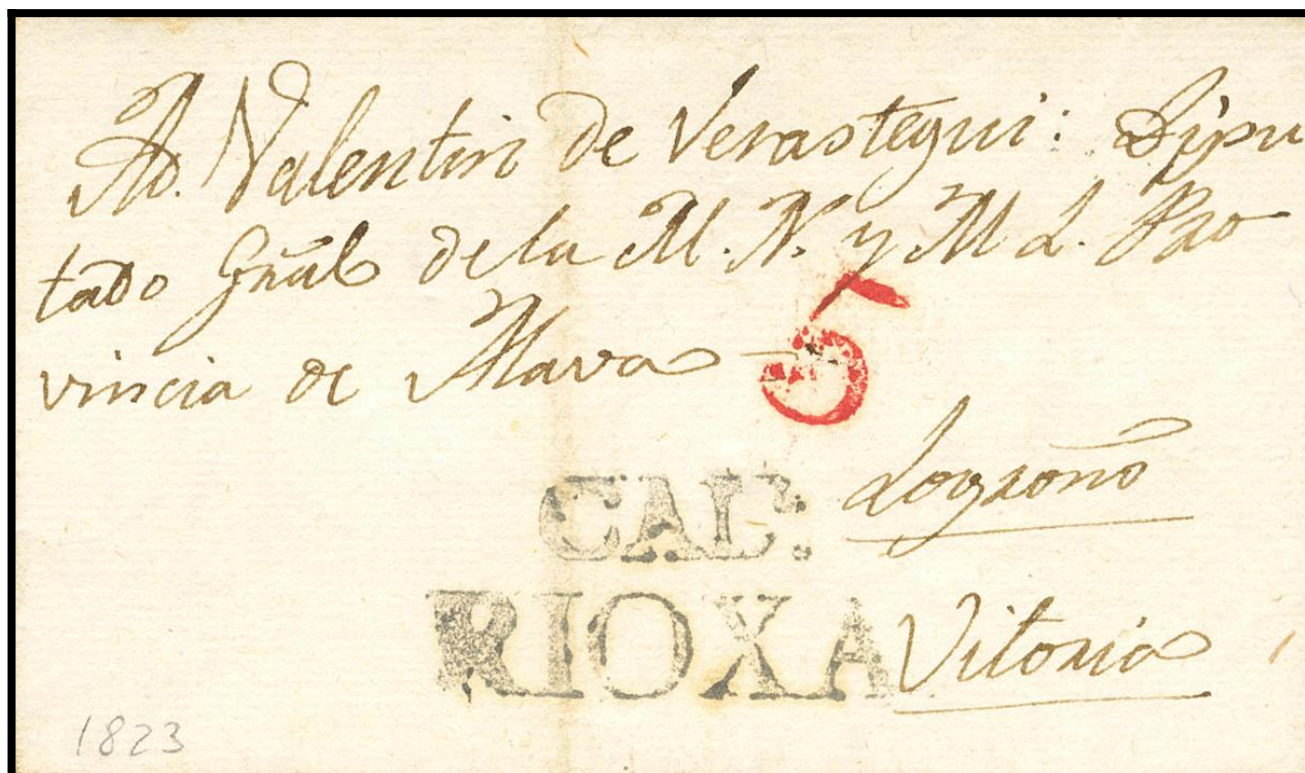 Ad. Valentin de Verastegui: Dipu
tado Gñal de la M. N. y M L. Pro
vincia de Alava
5
Logroño
CAL.
RIOXA
Vitoria
1823